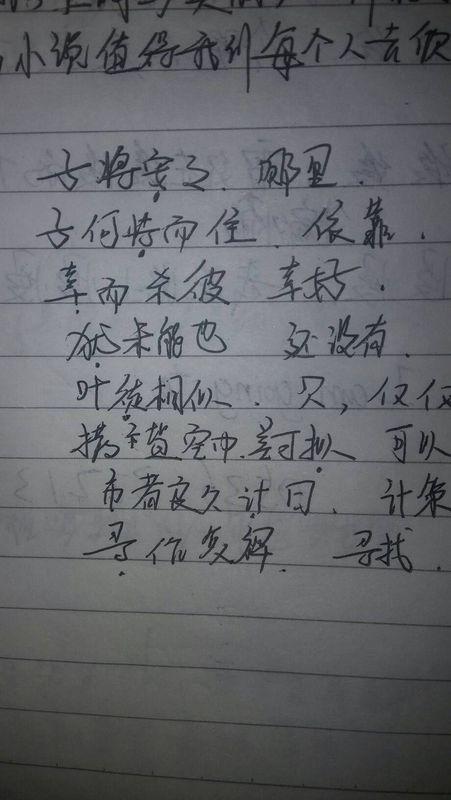 小说值得我们每个人去做
吾将安之. 哪里.
吾何恃而往. 依靠.
幸而杀彼 幸好.
犹未能也 还没有.
叶徒相似. 只, 仅仅
撒盐空中差可拟 可以
市者夜久计曰. 计策
寻作复裨. 寻找.